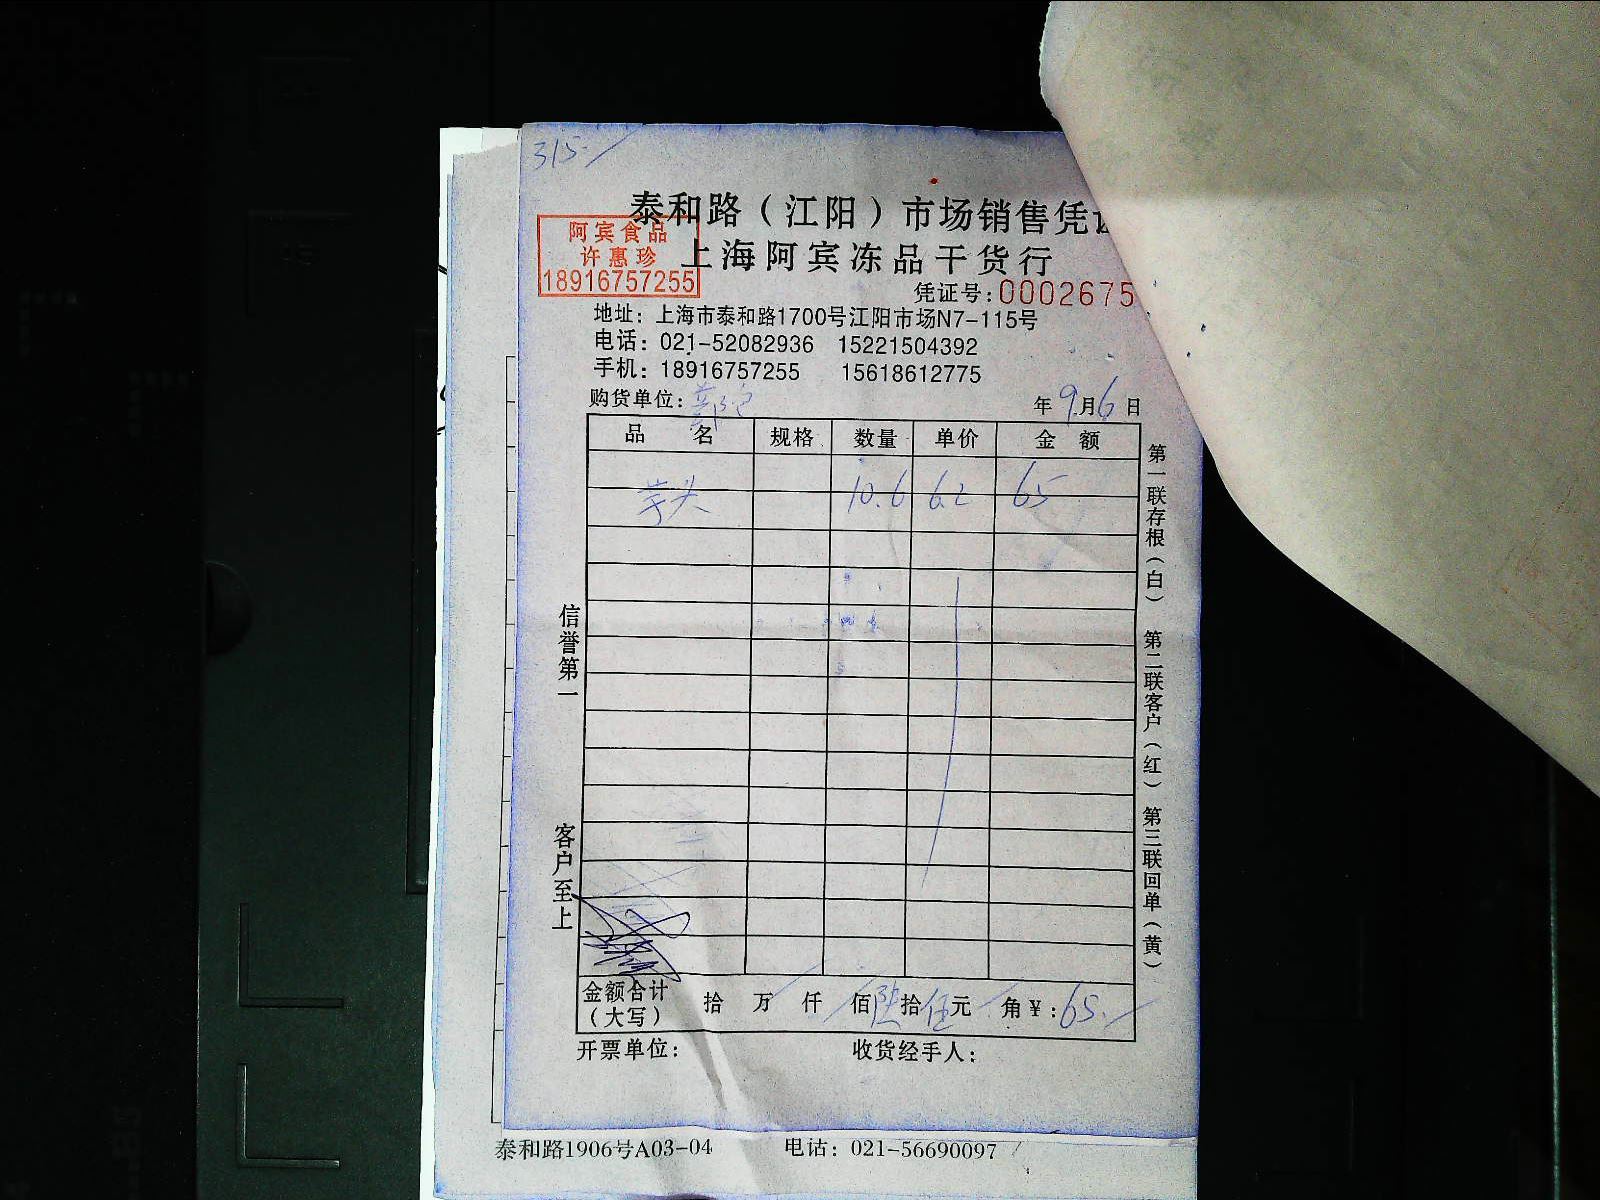 315.
泰和路（江阳）市场销售凭
上海阿宾冻品干货行
阿宾食品
许惠珍
18916757255
凭证号:0002675
地址：上海市泰和路1700号江阳市场N7-115号
电话：021-52082936 15221504392
手机：18916757255 15618612775
购货单位：
年9月6日
品名 规格 数量 单价 金额
芋头 10.6 6.2 65
金额合计（大写） 拾 万 仟 佰陆拾伍元 角￥:65.
开票单位： 收货经手人：
信誉第一 客户至上
第一联存根（白） 第二联客户（红） 第三联回单（黄）
泰和路1906号A03-04 电话：021-56690097